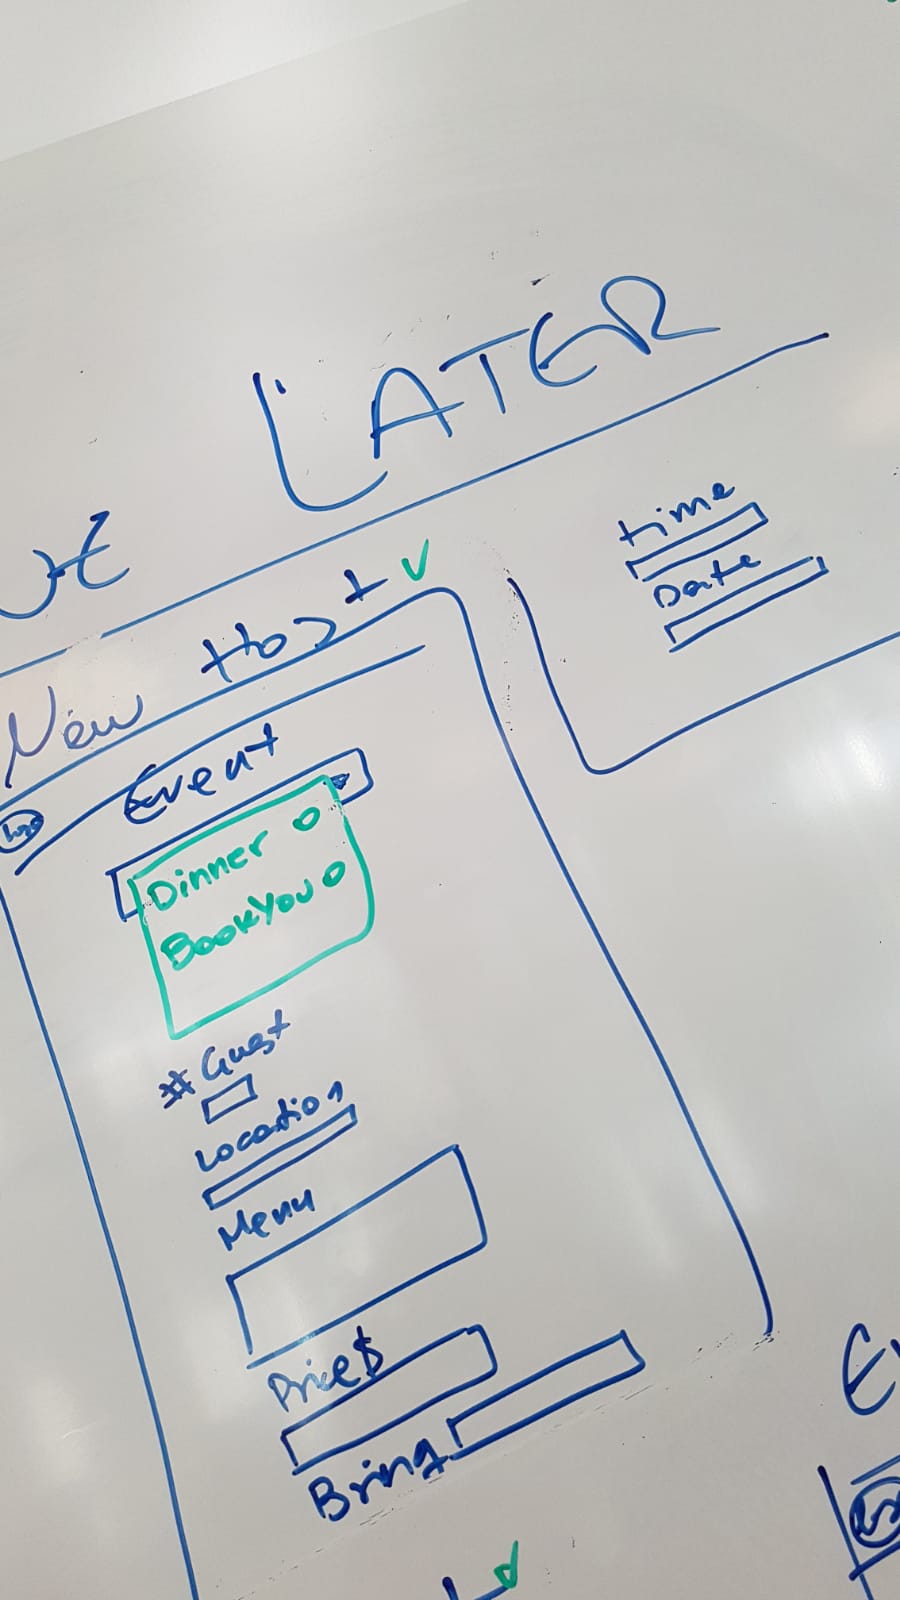 LATER
New Host ✓
Event
Dinner
BookYou
# Guest
Location
Menu
Price $
Bring
time
Date